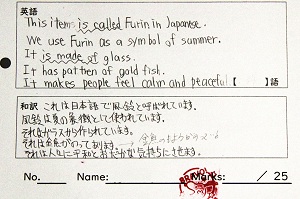 英語
This item is called Furin in Japanese.
We use Furin as a symbol of summer.
It is made of glass.
It has pattern of gold fish.
It makes people feel calm and peaceful【 】語
和訳 これは日本語で風鈴と呼ばれています。
風鈴は夏の象徴として使われています。
それはガラスから作られています。
それは金魚
それは人々に平和と な気持ちにさせます。
No. Name: Marks: / 25